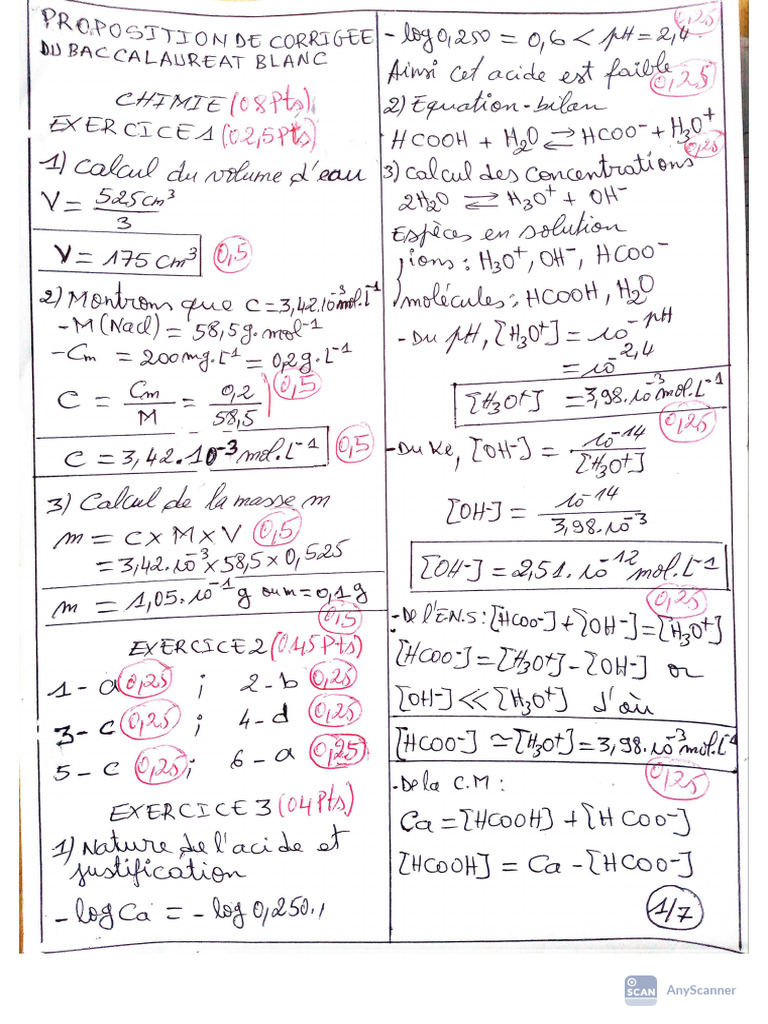 PROPOSITION DE CORRIGEE
DU BACCALAUREAT BLANC
CHIMIE (08 Pts)
EXERCICE 1 (02,5 Pts)
1) Calcul du volume d'eau
V = 525 cm³ / 3
V = 175 cm³ 0,5
2) Montrons que C = 3,42.10⁻³ mol.L⁻¹
- M(Nacl) = 58,5 g.mol⁻¹
- Cm = 200 mg.L⁻¹ = 0,2 g.L⁻¹
C = Cm / M = 0,2 / 58,5 0,5
C = 3,42.10⁻³ mol.L⁻¹ 0,5
3) Calcul de la masse m
m = C × M × V 0,5
= 3,42.10⁻³ × 58,5 × 0,525
m = 1,05.10⁻¹ g ou m = 0,1 g
0,5
EXERCICE 2 (01,5 Pts)
1 - a 0,25 ; 2 - b 0,25
3 - c 0,25 ; 4 - d 0,25
5 - c 0,25 ; 6 - a 0,25
EXERCICE 3 (04 Pts)
1) Nature de l'acide et
justification
- log Ca = - log 0,250.
0,25
- log 0,250 = 0,6 < pH = 2,4
Ainsi cet acide est faible 0,25
2) Equation-bilan
HCOOH + H₂O ⇌ HCOO⁻ + H₃O⁺
0,25
3) Calcul des concentrations
2H₂O ⇌ H₃O⁺ + OH⁻
Espèces en solution
ions : H₃O⁺, OH⁻, HCOO⁻
molécules : HCOOH, H₂O
- Du pH, [H₃O⁺] = 10⁻ᵖᴴ
= 10⁻²,⁴
[H₃O⁺] = 3,98.10⁻³ mol.L⁻¹
0,25
- Du Ke, [OH⁻] = 10⁻¹⁴ / [H₃O⁺]
[OH⁻] = 10⁻¹⁴ / 3,98.10⁻³
[OH⁻] = 2,51.10⁻¹² mol.L⁻¹
0,25
- De l'E.N.S : [HCOO⁻] + [OH⁻] = [H₃O⁺]
[HCOO⁻] = [H₃O⁺] - [OH⁻] or
[OH⁻] << [H₃O⁺] d'où
[HCOO⁻] ≃ [H₃O⁺] = 3,98.10⁻³ mol.L⁻¹
0,25
- De la C.M :
Ca = [HCOOH] + [HCOO⁻]
[HCOOH] = Ca - [HCOO⁻]
1/7
SCAN AnyScanner